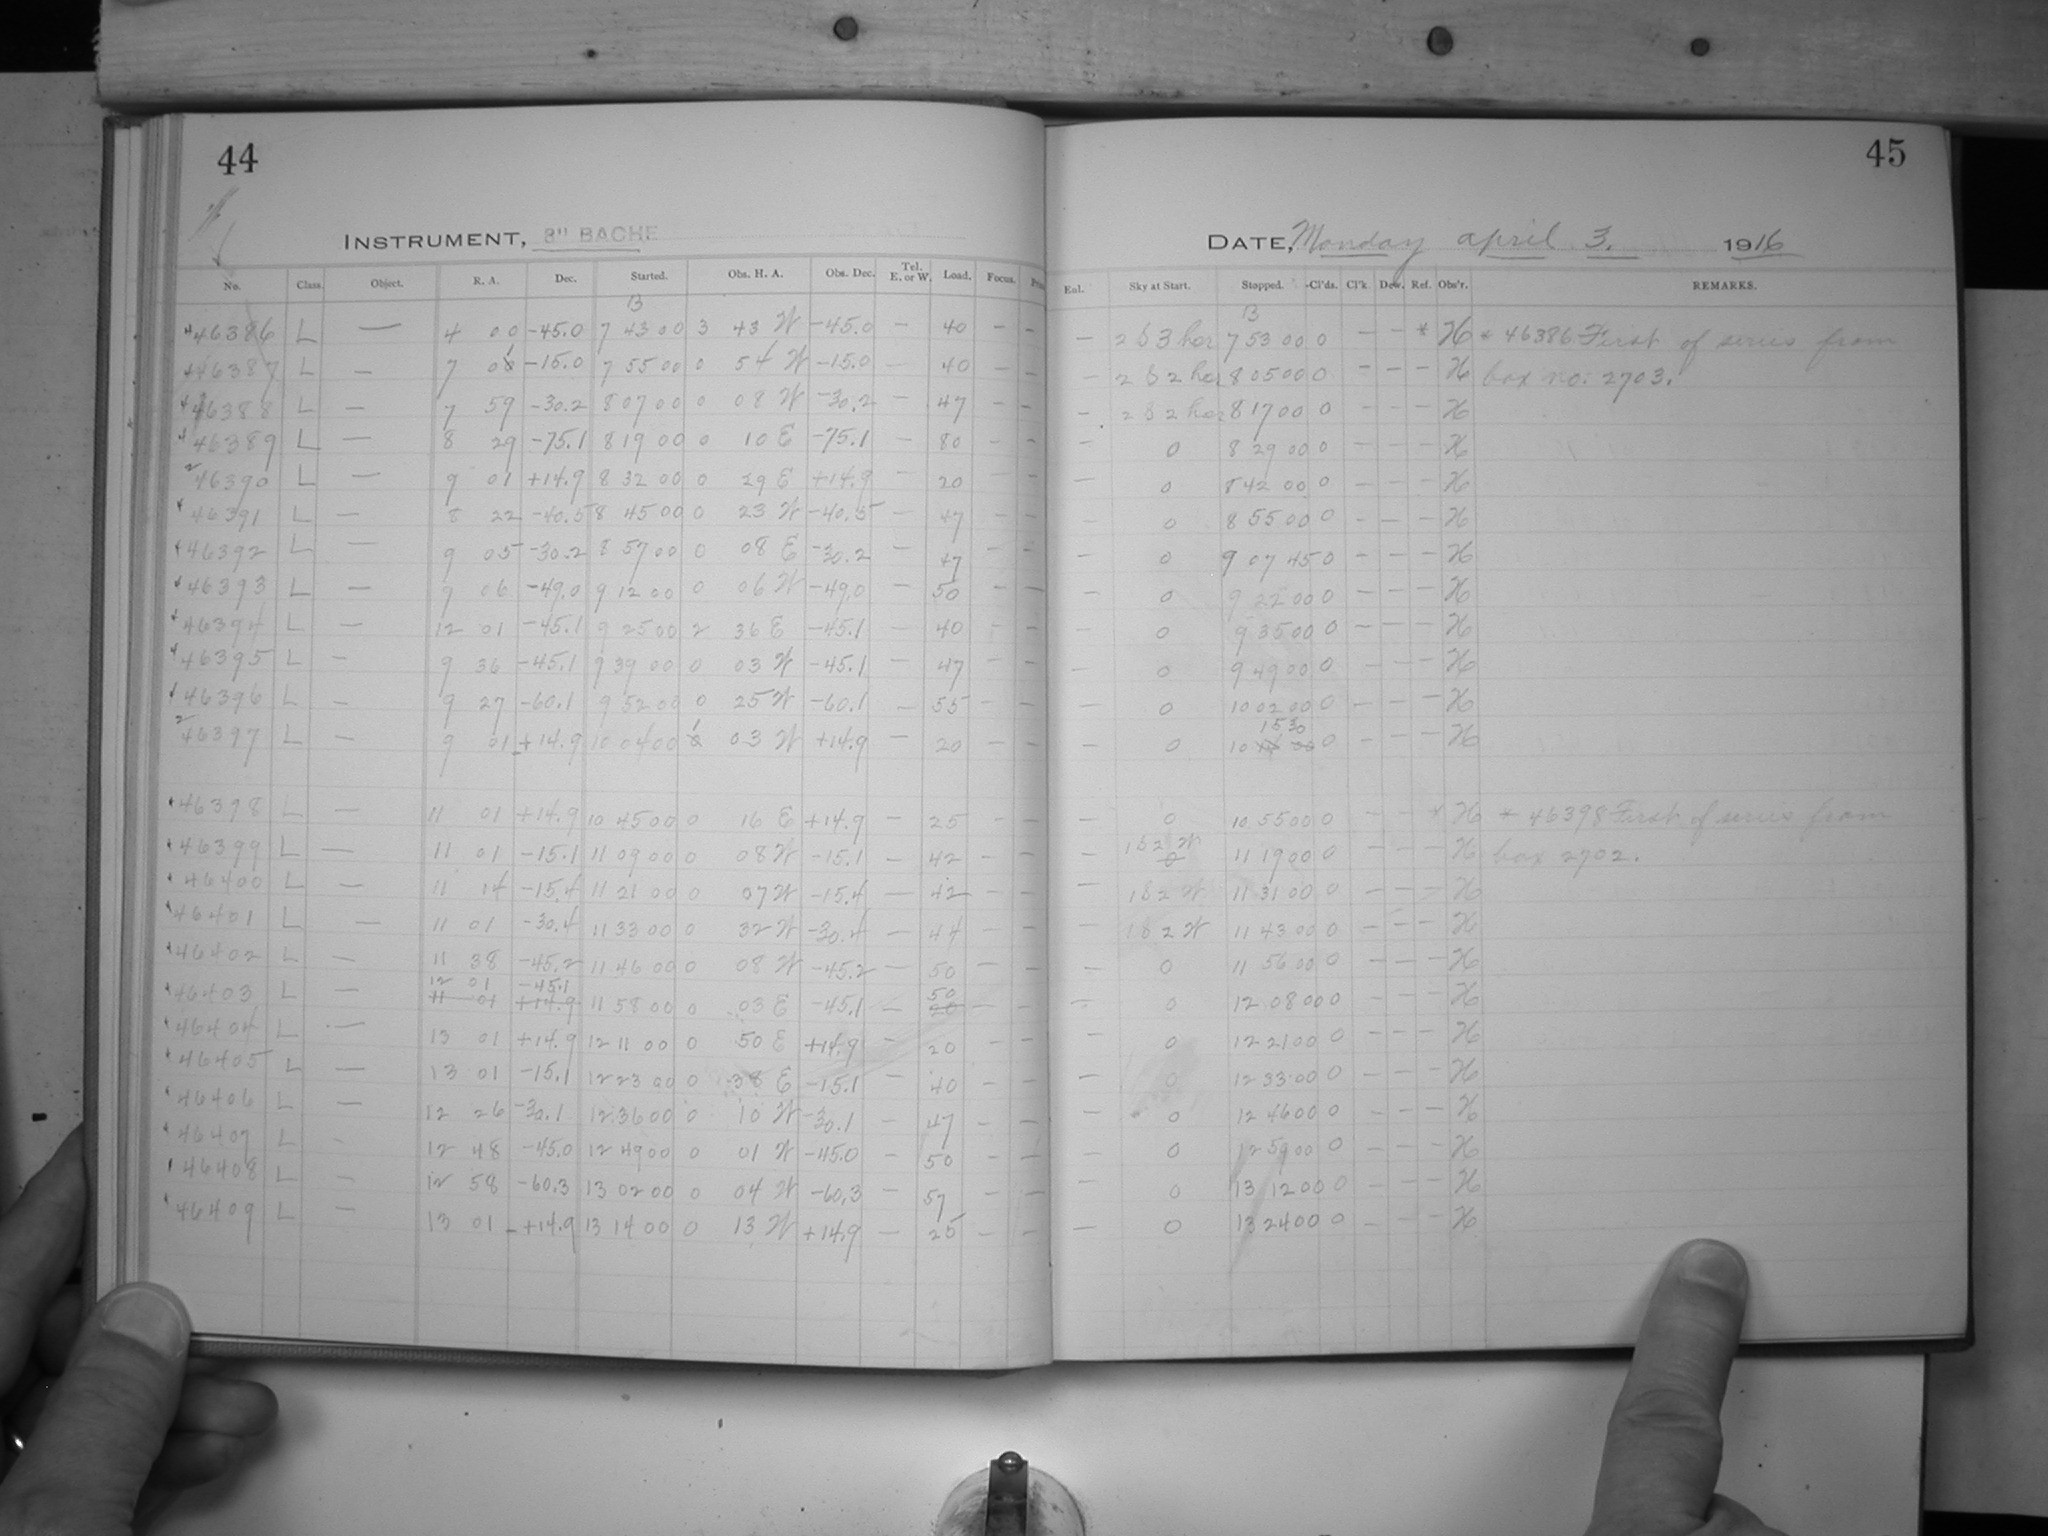 44
INSTRUMENT, 8" BACHE
No. Class. Object. R. A. Dec. Started. Obs. H. A. Obs. Dec. Tel. E. or W. Load. Focus.
B
46386 L — 4 00 -45.0 7 43 00 3 43 W -45.0 — 40 - -
46387 L — 7 01 -15.0 7 55 00 0 54 W -15.0 — 40 - -
46388 L — 7 59 -30.2 8 07 00 0 08 W -30.2 — 47 - -
46389 L — 8 29 -75.1 8 19 00 0 10 E -75.1 — 80 - -
46390 L — 9 01 +14.9 8 32 00 0 29 E +14.9 — 20 - -
46391 L — 8 22 -40.5 8 45 00 0 23 W -40.5 — 47 - -
46392 L — 9 05 -30.2 8 57 00 0 08 E -30.2 — 47 - -
46393 L — 9 06 -49.0 9 12 00 0 06 W -49.0 — 50 - -
46394 L — 12 01 -45.1 9 25 00 2 36 E -45.1 — 40 - -
46395 L — 9 36 -45.1 9 39 00 0 03 W -45.1 — 47 - -
46396 L — 9 27 -60.1 9 52 00 0 25 W -60.1 — 55 - -
46397 L — 9 01 +14.9 10 04 00 1 03 W +14.9 — 20 - -
46398 L — 11 01 +14.9 10 45 00 0 16 E +14.9 — 25 - -
46399 L — 11 01 -15.1 11 09 00 0 08 W -15.1 — 42 - -
46400 L — 11 14 -15.4 11 21 00 0 07 W -15.4 — 42 - -
46401 L — 11 01 -30.4 11 33 00 0 32 W -30.4 — 44 - -
46402 L — 11 38 -45.2 11 46 00 0 08 W -45.2 — 50 - -
12 01 -45.1 50
46403 L — 11 01 +14.9 11 58 00 0 03 E -45.1 — 20 - -
46404 L — 13 01 +14.9 12 11 00 0 50 E +14.9 — 20 - -
46405 L — 13 01 -15.1 12 23 00 0 38 E -15.1 — 40 - -
46406 L — 12 26 -30.1 12 36 00 0 10 W -30.1 — 47 - -
46407 L — 12 48 -45.0 12 49 00 0 01 W -45.0 — 50 - -
46408 L — 12 58 -60.3 13 02 00 0 04 W -60.3 — 57 - -
46409 L — 13 01 +14.9 13 14 00 0 13 W +14.9 — 25 - -
45
DATE, Monday April 3. 1916
Eal. Sky at Start. Stopped. Cl'ds. Cl'k. Dew. Ref. Obs'r. REMARKS.
B
— 2 S 3 hor 7 53 00 0 - - * H * 46386 First of series from
— 2 S 2 hor 8 05 00 0 - - - H box no: 2703.
— 2 S 2 hor 8 17 00 0 - - - H
— 0 8 29 00 0 - - - H
— 0 8 42 00 0 - - - H
— 0 8 55 00 0 - - - H
— 0 9 07 45 0 - - - H
— 0 9 22 00 0 - - - H
— 0 9 35 00 0 - - - H
— 0 9 49 00 0 - - - H
— 0 10 02 00 0 - - - H
15 30
— 0 10 0 - - - H
— 0 10 55 00 0 - - * H * 46398 First of series from
— 1 S 2 W 11 19 00 0 - - - H box 2702.
— 1 S 2 W 11 31 00 0 - - - H
— 1 S 2 W 11 43 00 0 - - - H
— 0 11 56 00 0 - - - H
— 0 12 08 00 0 - - - H
— 0 12 21 00 0 - - - H
— 0 12 33 00 0 - - - H
— 0 12 46 00 0 - - - H
— 0 12 59 00 0 - - - H
— 0 13 12 00 0 - - - H
— 0 13 24 00 0 - - - H